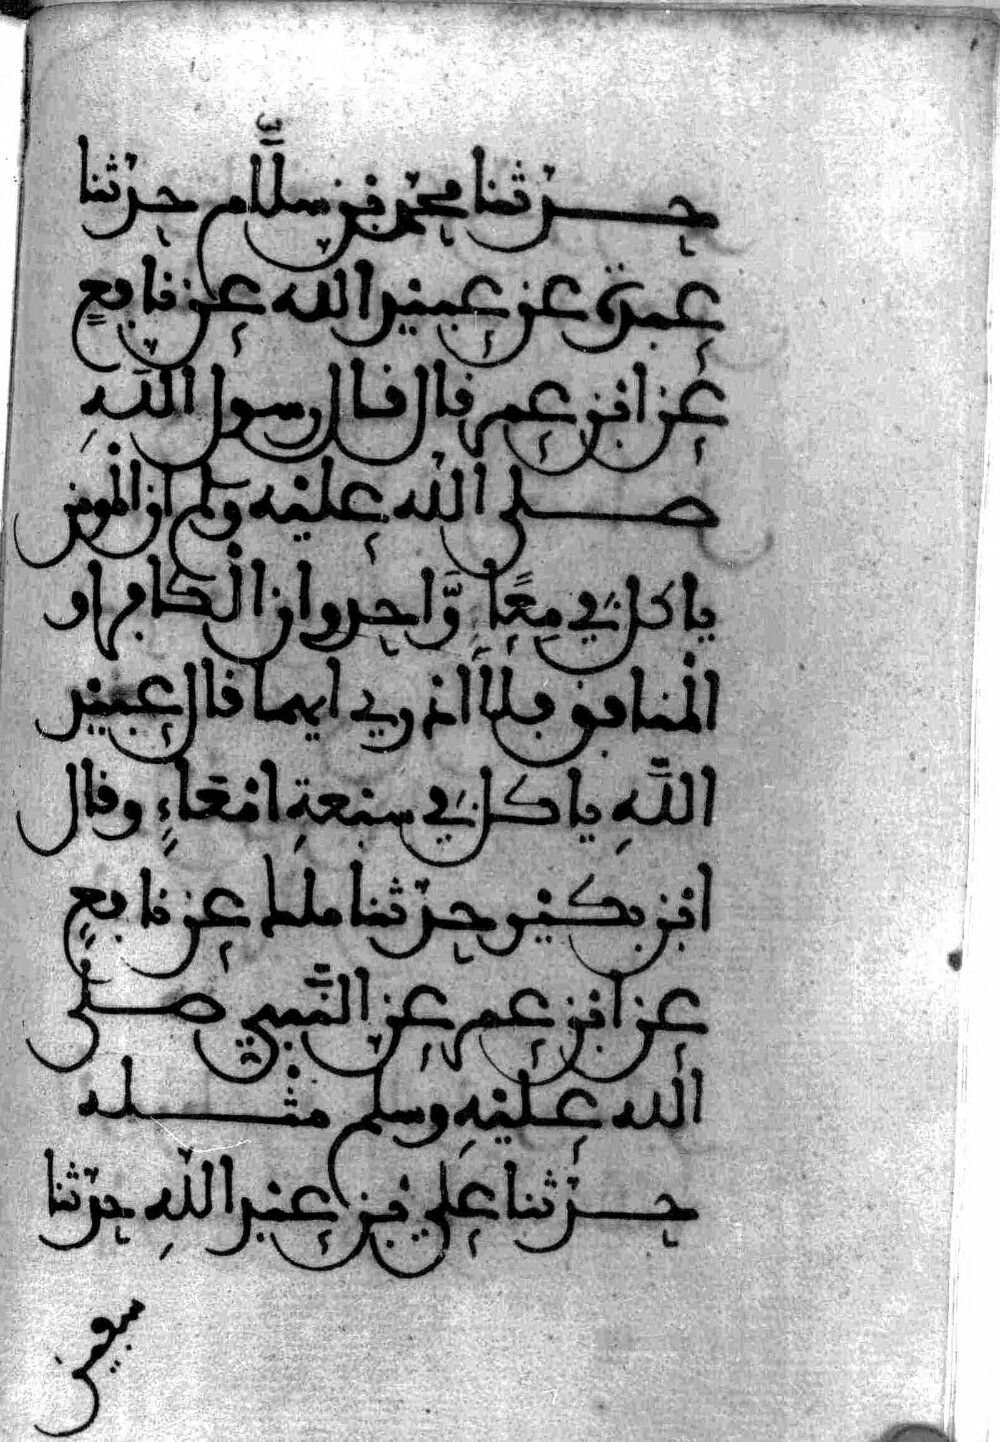 حدثنا محمد بن سلام حدثنا
عبدة عن عبيد الله عن نافع
عن ابن عمر قال قال رسول الله
صلى الله عليه وسلم ان المومن
ياكل في معًا وَّاحد وان الكافر او
المنافق فلا أدري ايهما قال عبيد
اللَّهِ ياكل في سبعةِ امْعَاءٍ وقال
ابن بكير حدثنا ملك عن نافع
عن ابن عمر عن النَّبي صلى
الله عليهِ وسلم مثله
حدثنا علي بن عبد اللهِ حدثنا
سفين